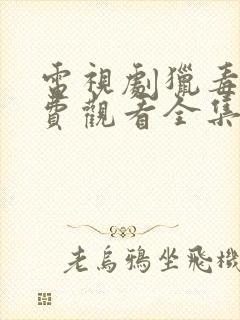 電視劇獵毒
費觀看全集
老烏鴉坐飛機